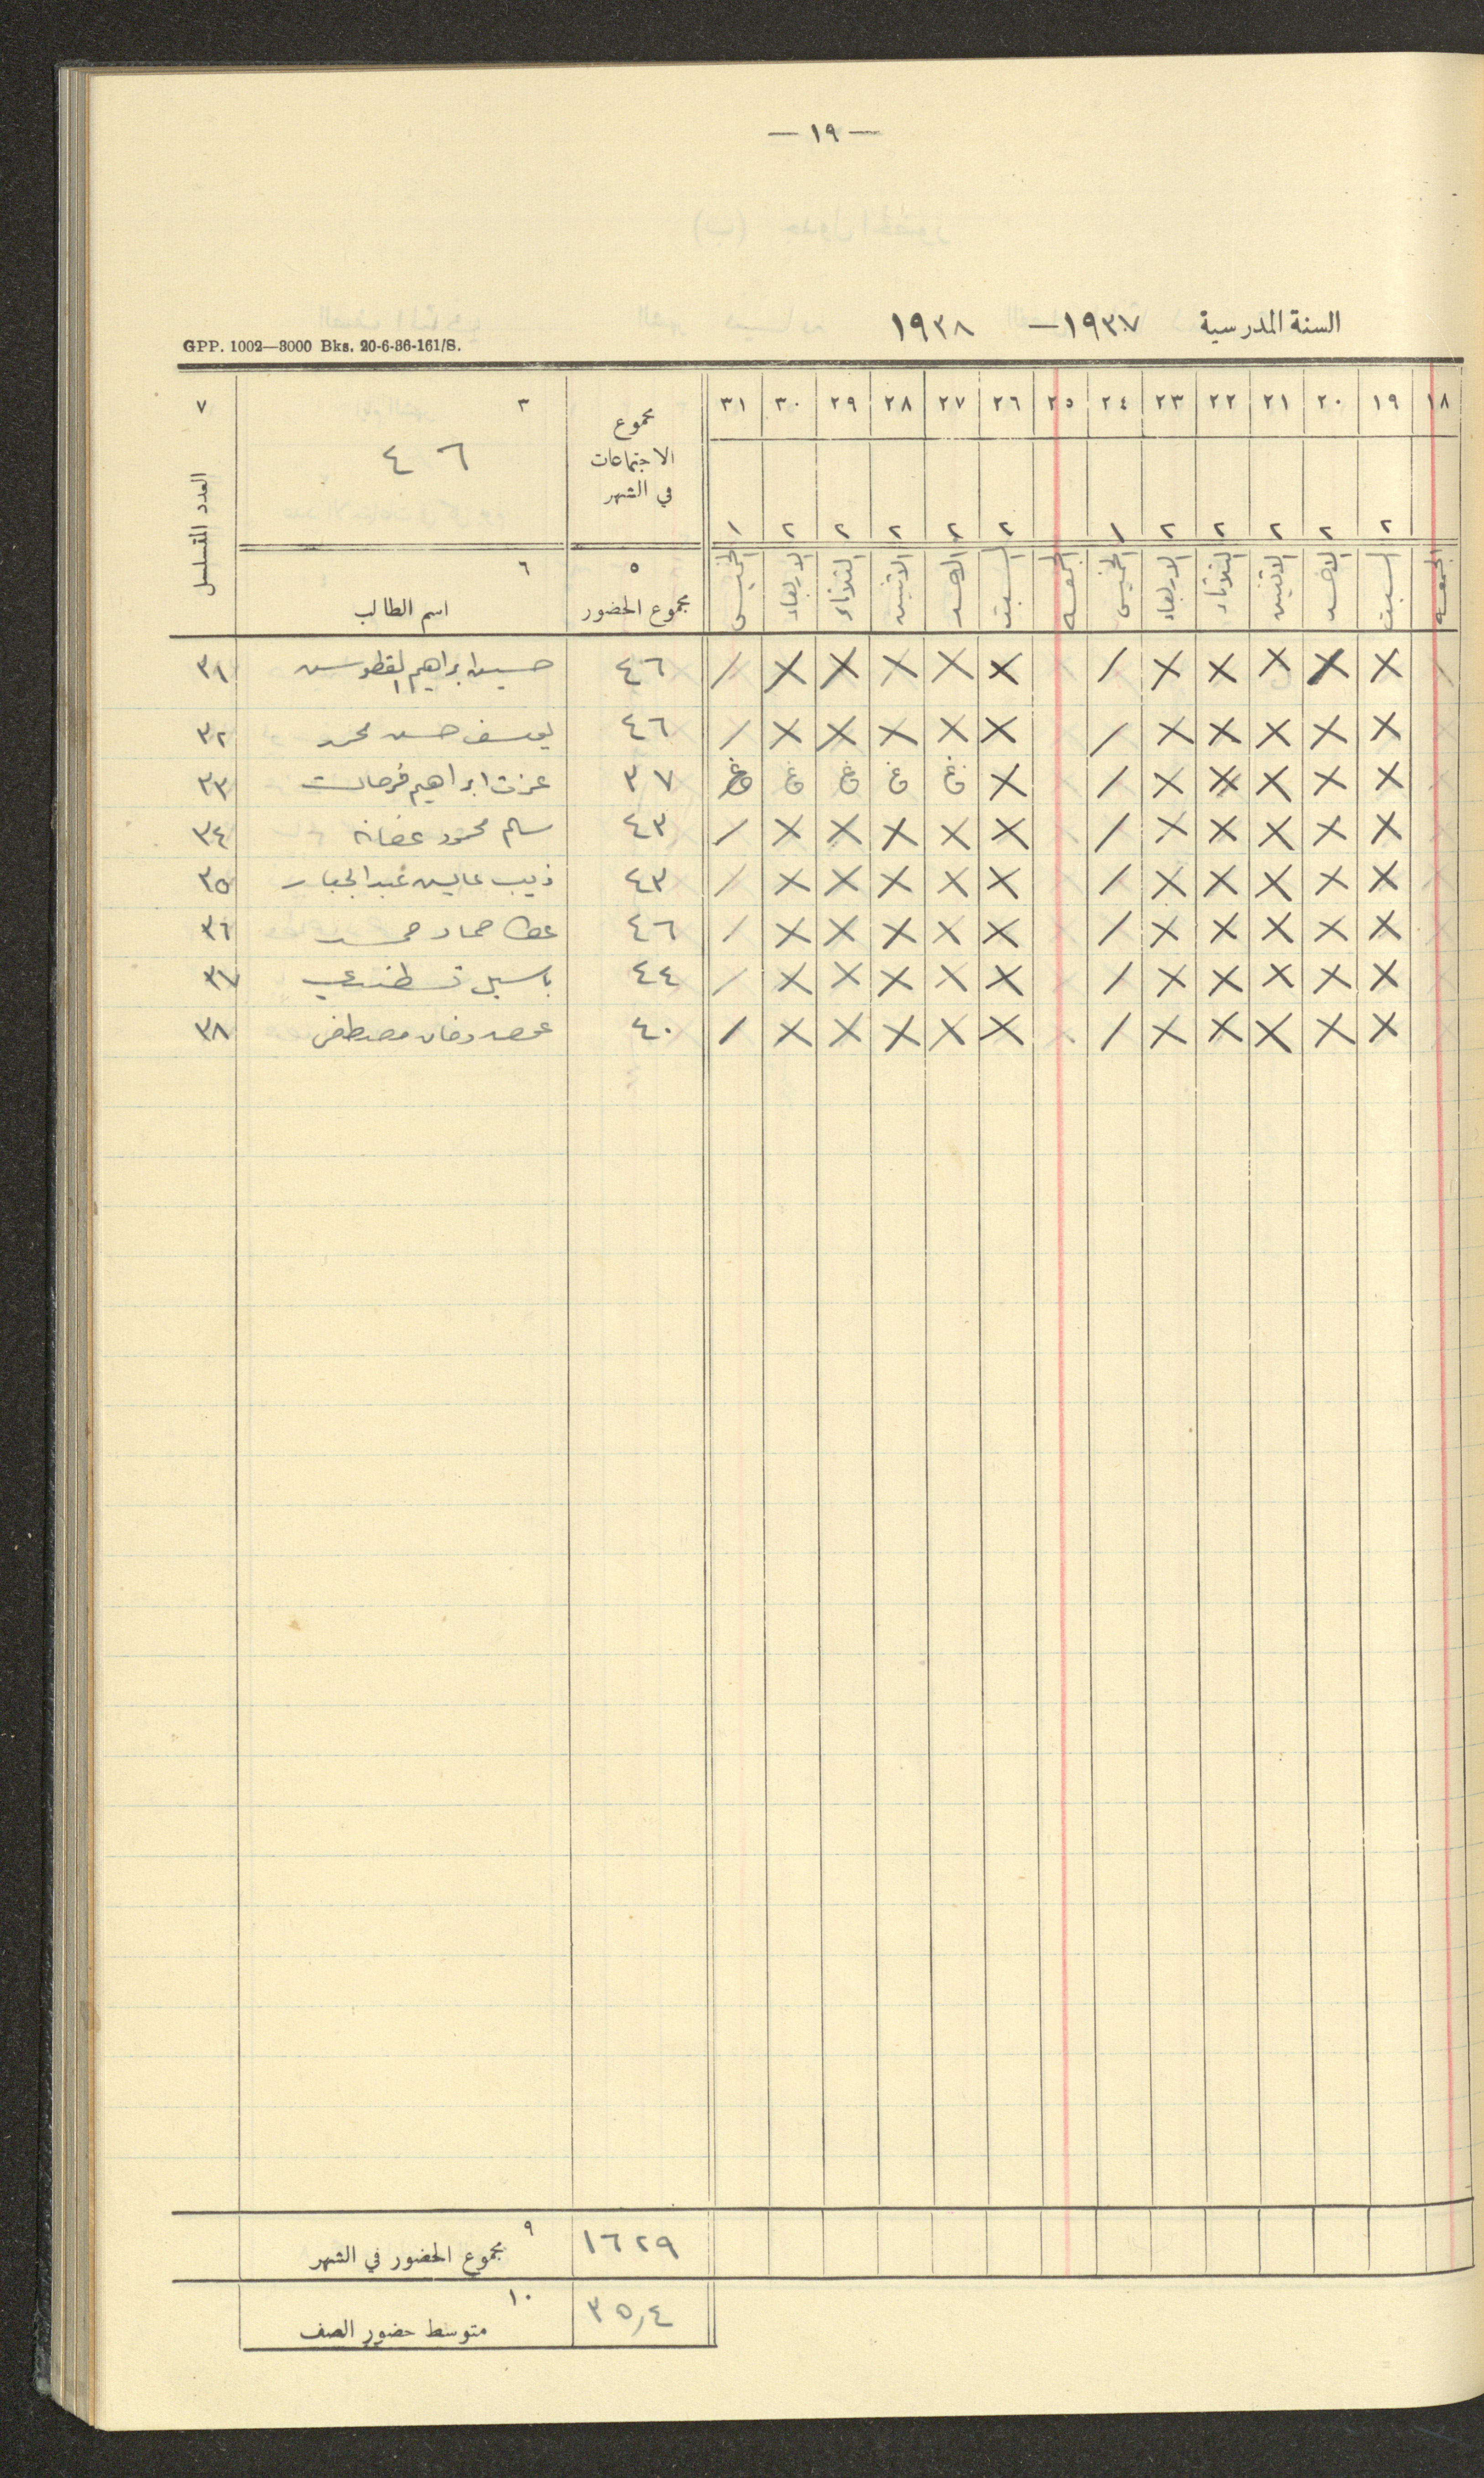 — ١٩ —
السنة المدرسية ١٩٣٧ — ١٩٣٨
GPP. 1002—3000 Bks. 20-6-36-161/S.
١٨ ١٩ ٢٠ ٢١ ٢٢ ٢٣ ٢٤ ٢٥ ٢٦ ٢٧ ٢٨ ٢٩ ٣٠ ٣١ مجموع الاجتماعات في الشهر ٣ ٤٦ ٧ العدد المتسلسل
٢ ٢ ٢ ٢ ٢ ١ ٢ ٢ ٢ ٢ ٢ ١
الجمعه السبت الاحد الاثنين الثلاثاء الاربعاء الخميس الجمعه السبت الاحد الاثنين الثلاثاء الاربعاء الخميس ٥ مجموع الحضور ٦ اسم الطالب
/ X X X X X / X X X X X / ٤٦ حسين ابراهيم ٣١
X X X X X / X X X X X / ٤٦ يوسف حسن محمد ٣٢
X X X X X / X غ غ غ غ غ ٣٧ عزت ابراهيم فرحات ٣٣
X X X X X / X X X X X / ٤٣ سالم محمود عفانه ٣٤
X X X X X / X X X X X / ٤٣ ذيب عايس عبد الجبار ٣٥
X X X X X / X X X X X / ٤٦ عطا حماد حمد ٣٦
X X X X X / X X X X X / ٤٤ باسيل قسطندي ٣٧
X X X X X / X X X X X / ٤٠ مصطفى ٣٨
١٦٢٩ ٩ مجموع الحضور في الشهر
٣٥٫٤ ١٠ متوسط حضور الصف